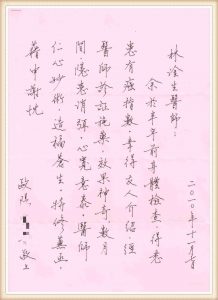 林生醫師：
余於半年前身體檢查，得悉
患有癌指數，幸得友人介紹，經
醫師診証施藥，效果神奇，數月
間隱患消弭，心寬意泰，醫師
仁心妙術，造福蒼生，特修蕪函，
藉申謝忱
敬上
二〇一〇年十一月